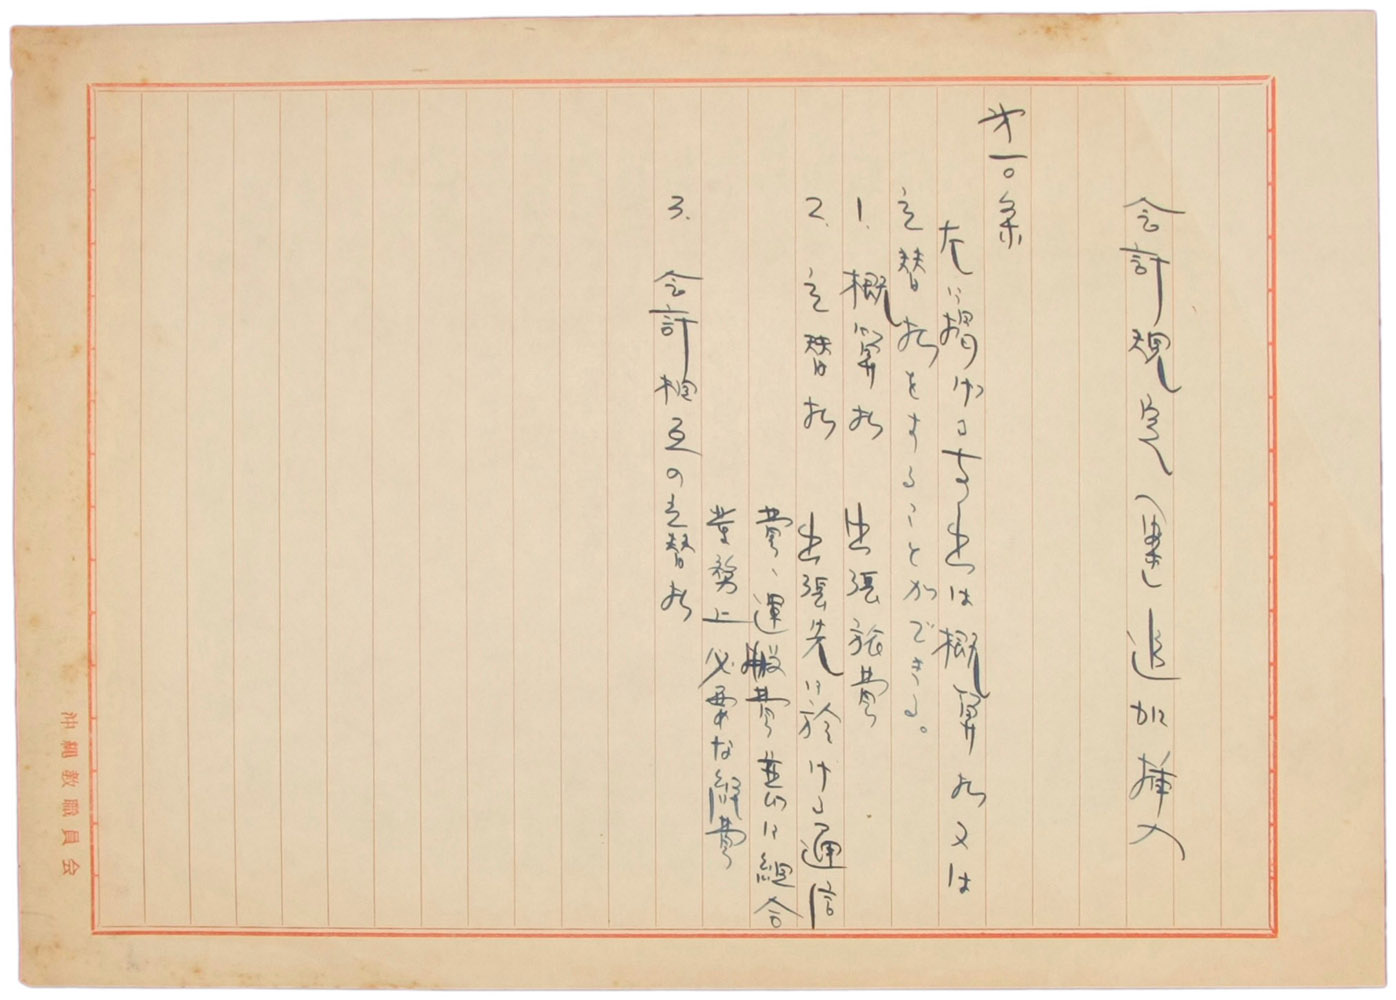 会計規定に追加挿入
才一〇条
左に掲げる支出は概算払又は
立替払をすることができる。
1. 概算払 出張旅費
2. 立替払 出張先に於ける通信
費、運搬費並に組合
業務上必要な経費
3. 会計相互の立替払
沖縄教職員会